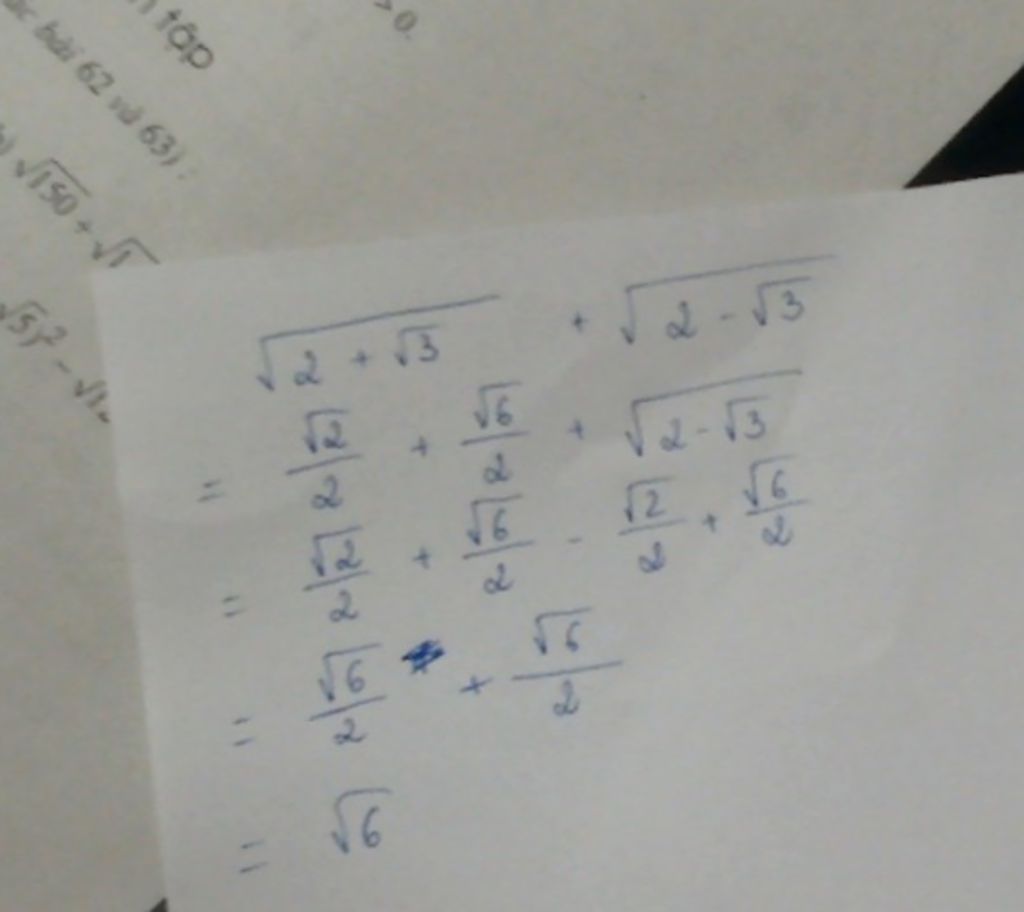 > 0.
n tập
bài 62 và 63) :
√150 + √1
√5)² - √1
√(2 + √3) + √(2 - √3)
= √2/2 + √6/2 + √(2 - √3)
= √2/2 + √6/2 - √2/2 + √6/2
= √6/2 + √6/2
= √6